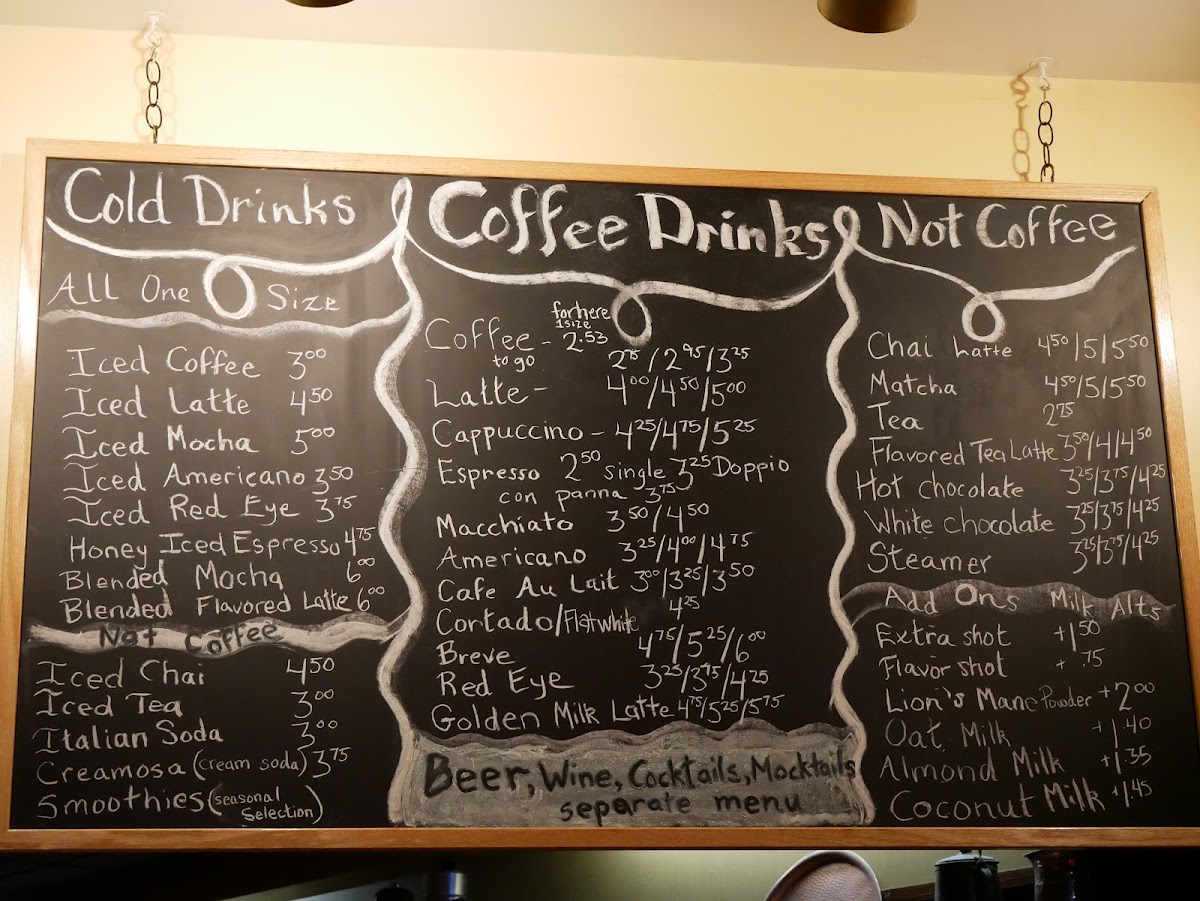 Cold Drinks
All One Size
Iced Coffee 3.00
Iced Latte 4.50
Iced Mocha 5.00
Iced Americano 3.50
Iced Red Eye 3.75
Honey Iced Espresso 4.75
Blended Mocha 6.00
Blended Flavored Latte 6.00
Not Coffee
Iced Chai 4.50
Iced Tea 3.00
Italian Soda 3.00
Creamosa (cream soda) 3.75
Smoothies (seasonal Selection)
Coffee Drinks
Coffee - for here 1 size 2.53
to go 2.75/2.95/3.25
Latte - 4.00/4.50/5.00
Cappuccino - 4.25/4.75/5.25
Espresso 2.50 single 3.25 Doppio
con panna 3.75
Macchiato 3.50/4.50
Americano 3.25/4.00/4.75
Cafe Au Lait 3.00/3.25/3.50
Cortado/Flatwhite 4.25
Breve 4.75/5.25/6.00
Red Eye 3.25/3.75/4.25
Golden Milk Latte 4.75/5.25/5.75
Beer, Wine, Cocktails, Mocktails
separate menu
Not Coffee
Chai Latte 4.50/5/5.50
Matcha 4.50/5/5.50
Tea 2.75
Flavored Tea Latte 3.50/4/4.50
Hot chocolate 3.25/3.75/4.25
White chocolate 3.25/3.75/4.25
Steamer 3.25/3.75/4.25
Add Ons Milk Alts
Extra shot +1.50
Flavor shot + .75
Lion's Mane Powder +2.00
Oat Milk +1.40
Almond Milk +1.35
Coconut Milk +1.45